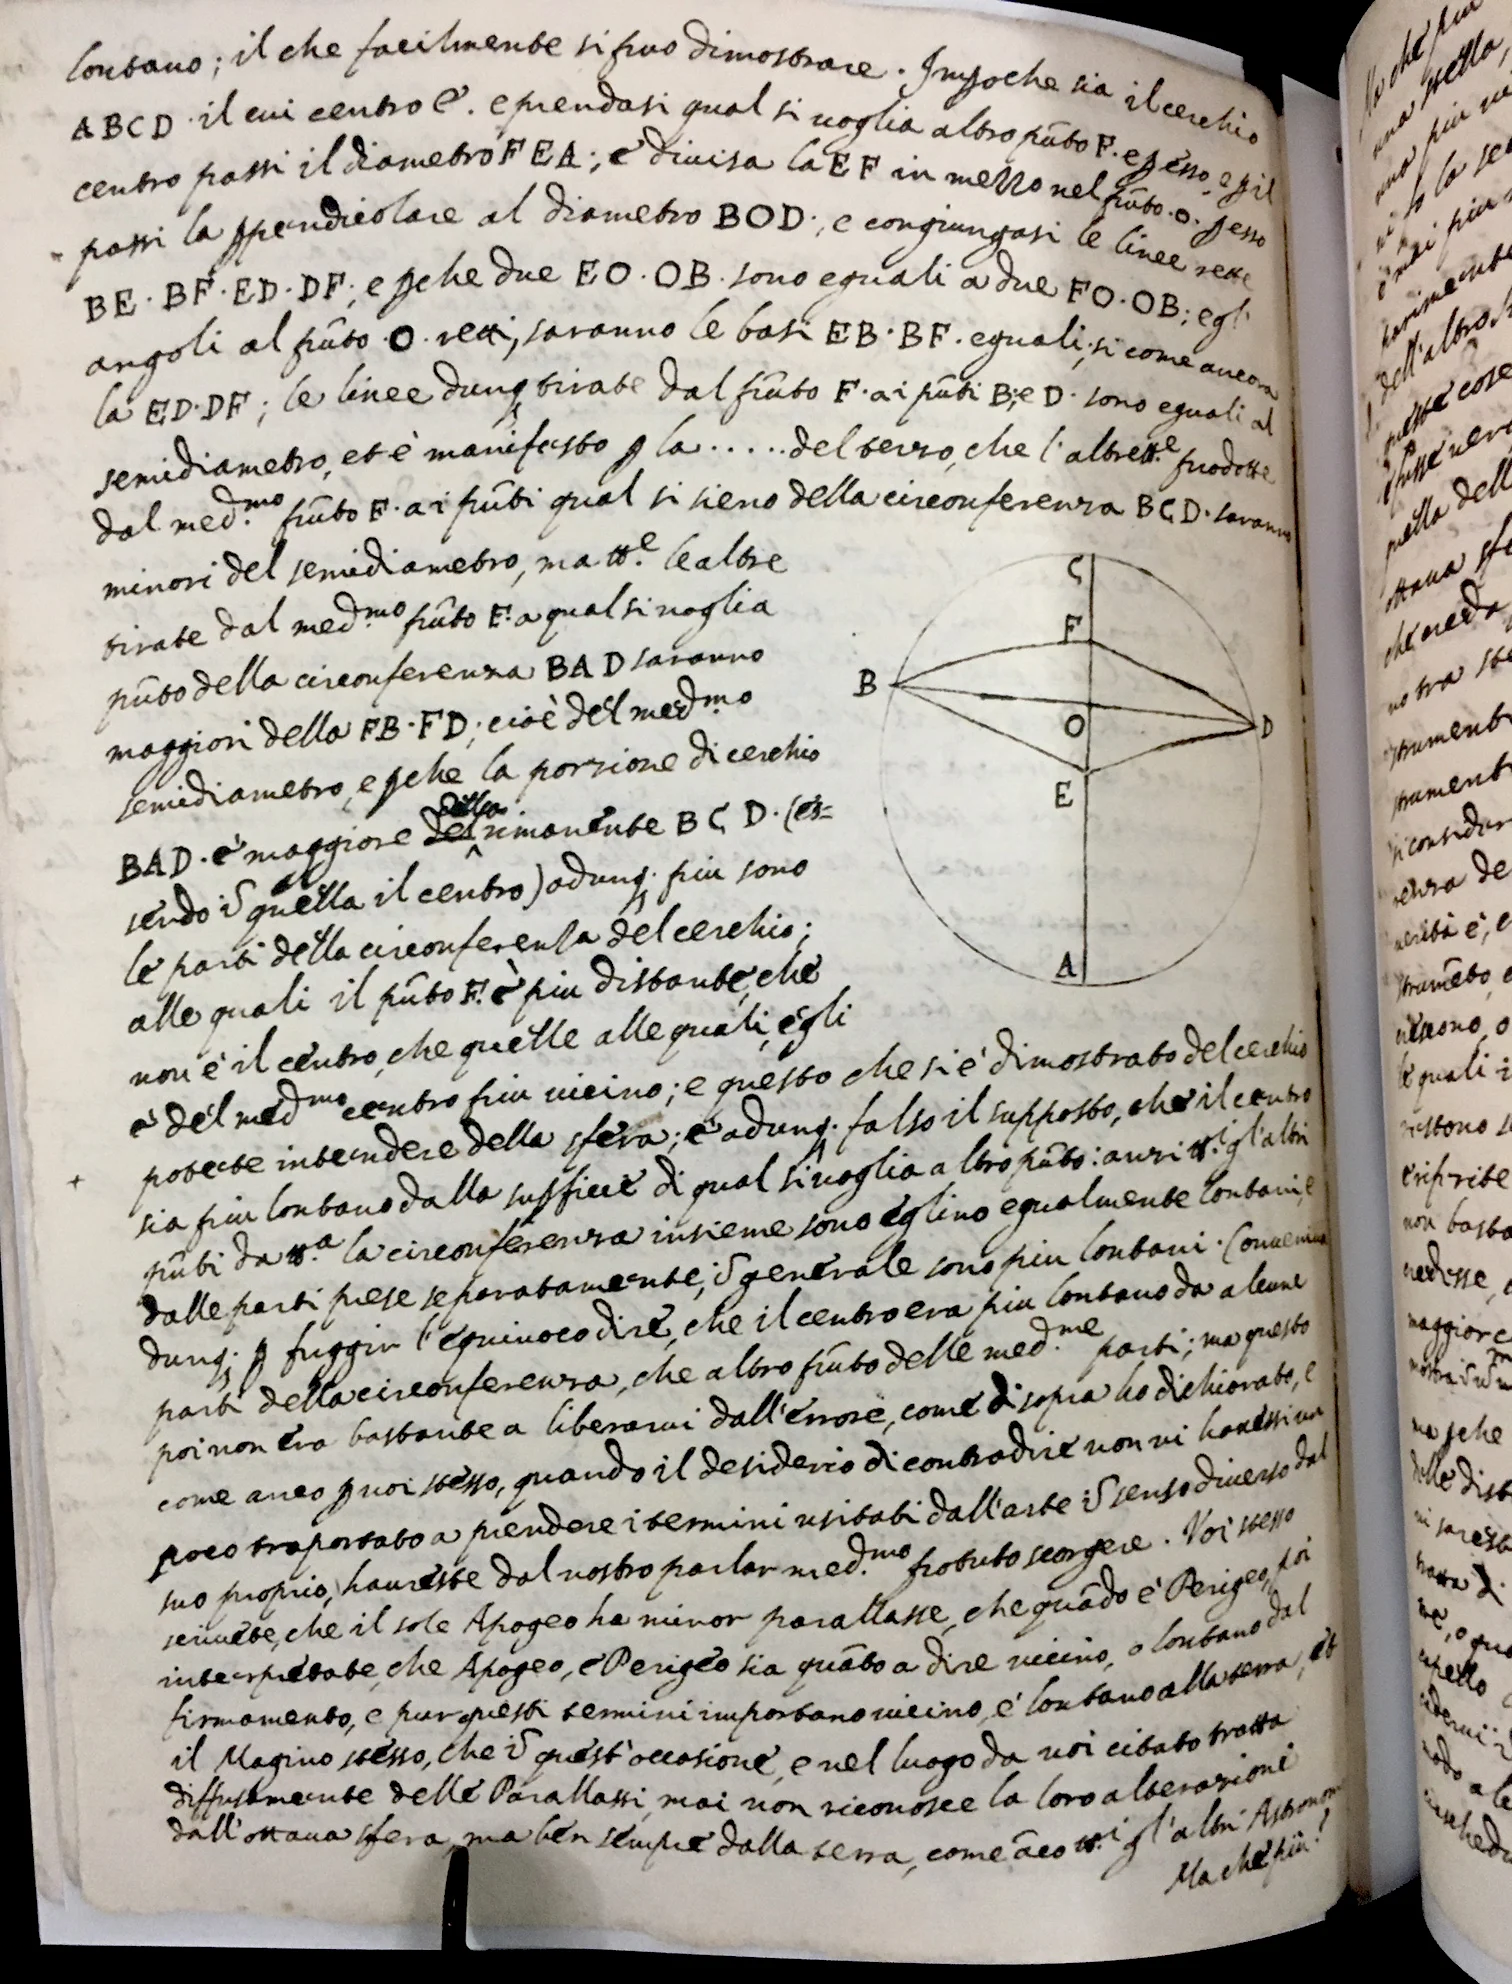 lontano; il che facilmente si puo dimostrare. Imp̱oche sia il cerchio
ABCD. il cui centro E. e prendasi qual si uoglia altro pũto F. e p̱ esso, e p̱ il
centro passi il diametro FEA; e diuisa la EF in mezzo nel pũto. O. p̱ esso
passi la p̱pendicolare al diametro BOD; e congiungasi le linee rette
BE. BF. ED. DF; e p̱che due EO. OB. sono eguali a due FO. OB; e gl'
angoli al pũto. O. retti, saranno le basi EB. BF. eguali; si come ancora
la ED. DF; le linee dunq; tirate dal pũto F. a i pũti B; e D. sono eguali al
semidiametro, et è manifesto p̱ la ..... del terzo, che l'altre tt.e prodotte
dal med.mo pũto F. a i pũti qual si sieno della circonferenza BCD. saranno
minori del semidiametro, ma tt.e le altre
tirate dal med.mo pũto F. a qual si uoglia
pũto della circonferenza BAD saranno
maggiori della FB. FD; cioè del med.mo
semidiametro, e p̱che la porzione di cerchio
BAD. è maggiore del della rimanente BCD. (es=
sendo ĩ quella il centro) adunq; piu sono
le parti della circonferenza del cerchio;
alle quali il pũto F. è piu distante, che
non è il centro, che quelle alle quali, egli
è del med.mo centro piu uicino; e questo che si è dimostrato del cerchio
potete intendere della sfera; è adunq; falso il supposto, che il centro
+ sia piu lontano dalla sup̱ficie di qual si uoglia altro pũto: anzi tt.i gl'altri
pũti da tt.a la circonferenza insieme sono eglino egualmente lontani, e
dalle parti prese separatamente, ĩ generale sono piu lontani. Conueniua
dunq; p̱ fuggir l'equiuoco dire, che il centro era piu lontano da alcune
parti della circonferenza, che altro pũto delle med.me parti; ma questo
poi non era bastante a liberarui dall'errore, come di sopra ho dichiarato, e
come anco p̱ uoi stesso, quando il desiderio di contradire non ui hauessi un
poco traportato a prendere i termini usitati dall'arte ĩ senso diuerso dal
suo proprio, haureste dal uostro parlar med.mo potuto scorgere. Voi stesso
scriuete, che il sole Apogeo ha minor parallasse, che quãdo è Perigeo, poi
interpretate, che Apogeo, e Perigeo sia quãto a dire uicino, o lontano dal
firmamento, e pur questi termini importano uicino, e lontano alla terra, et
il Magino stesso, che ĩ quest'occasione, e nel luogo da uoi citato tratta
diffusamente delle Parallassi, mai non riconosce la loro alterazioni
dall'ottaua sfera, ma ben sempre dalla terra, come ãco tt.i gl'altri Astronomi
Ma che piu?